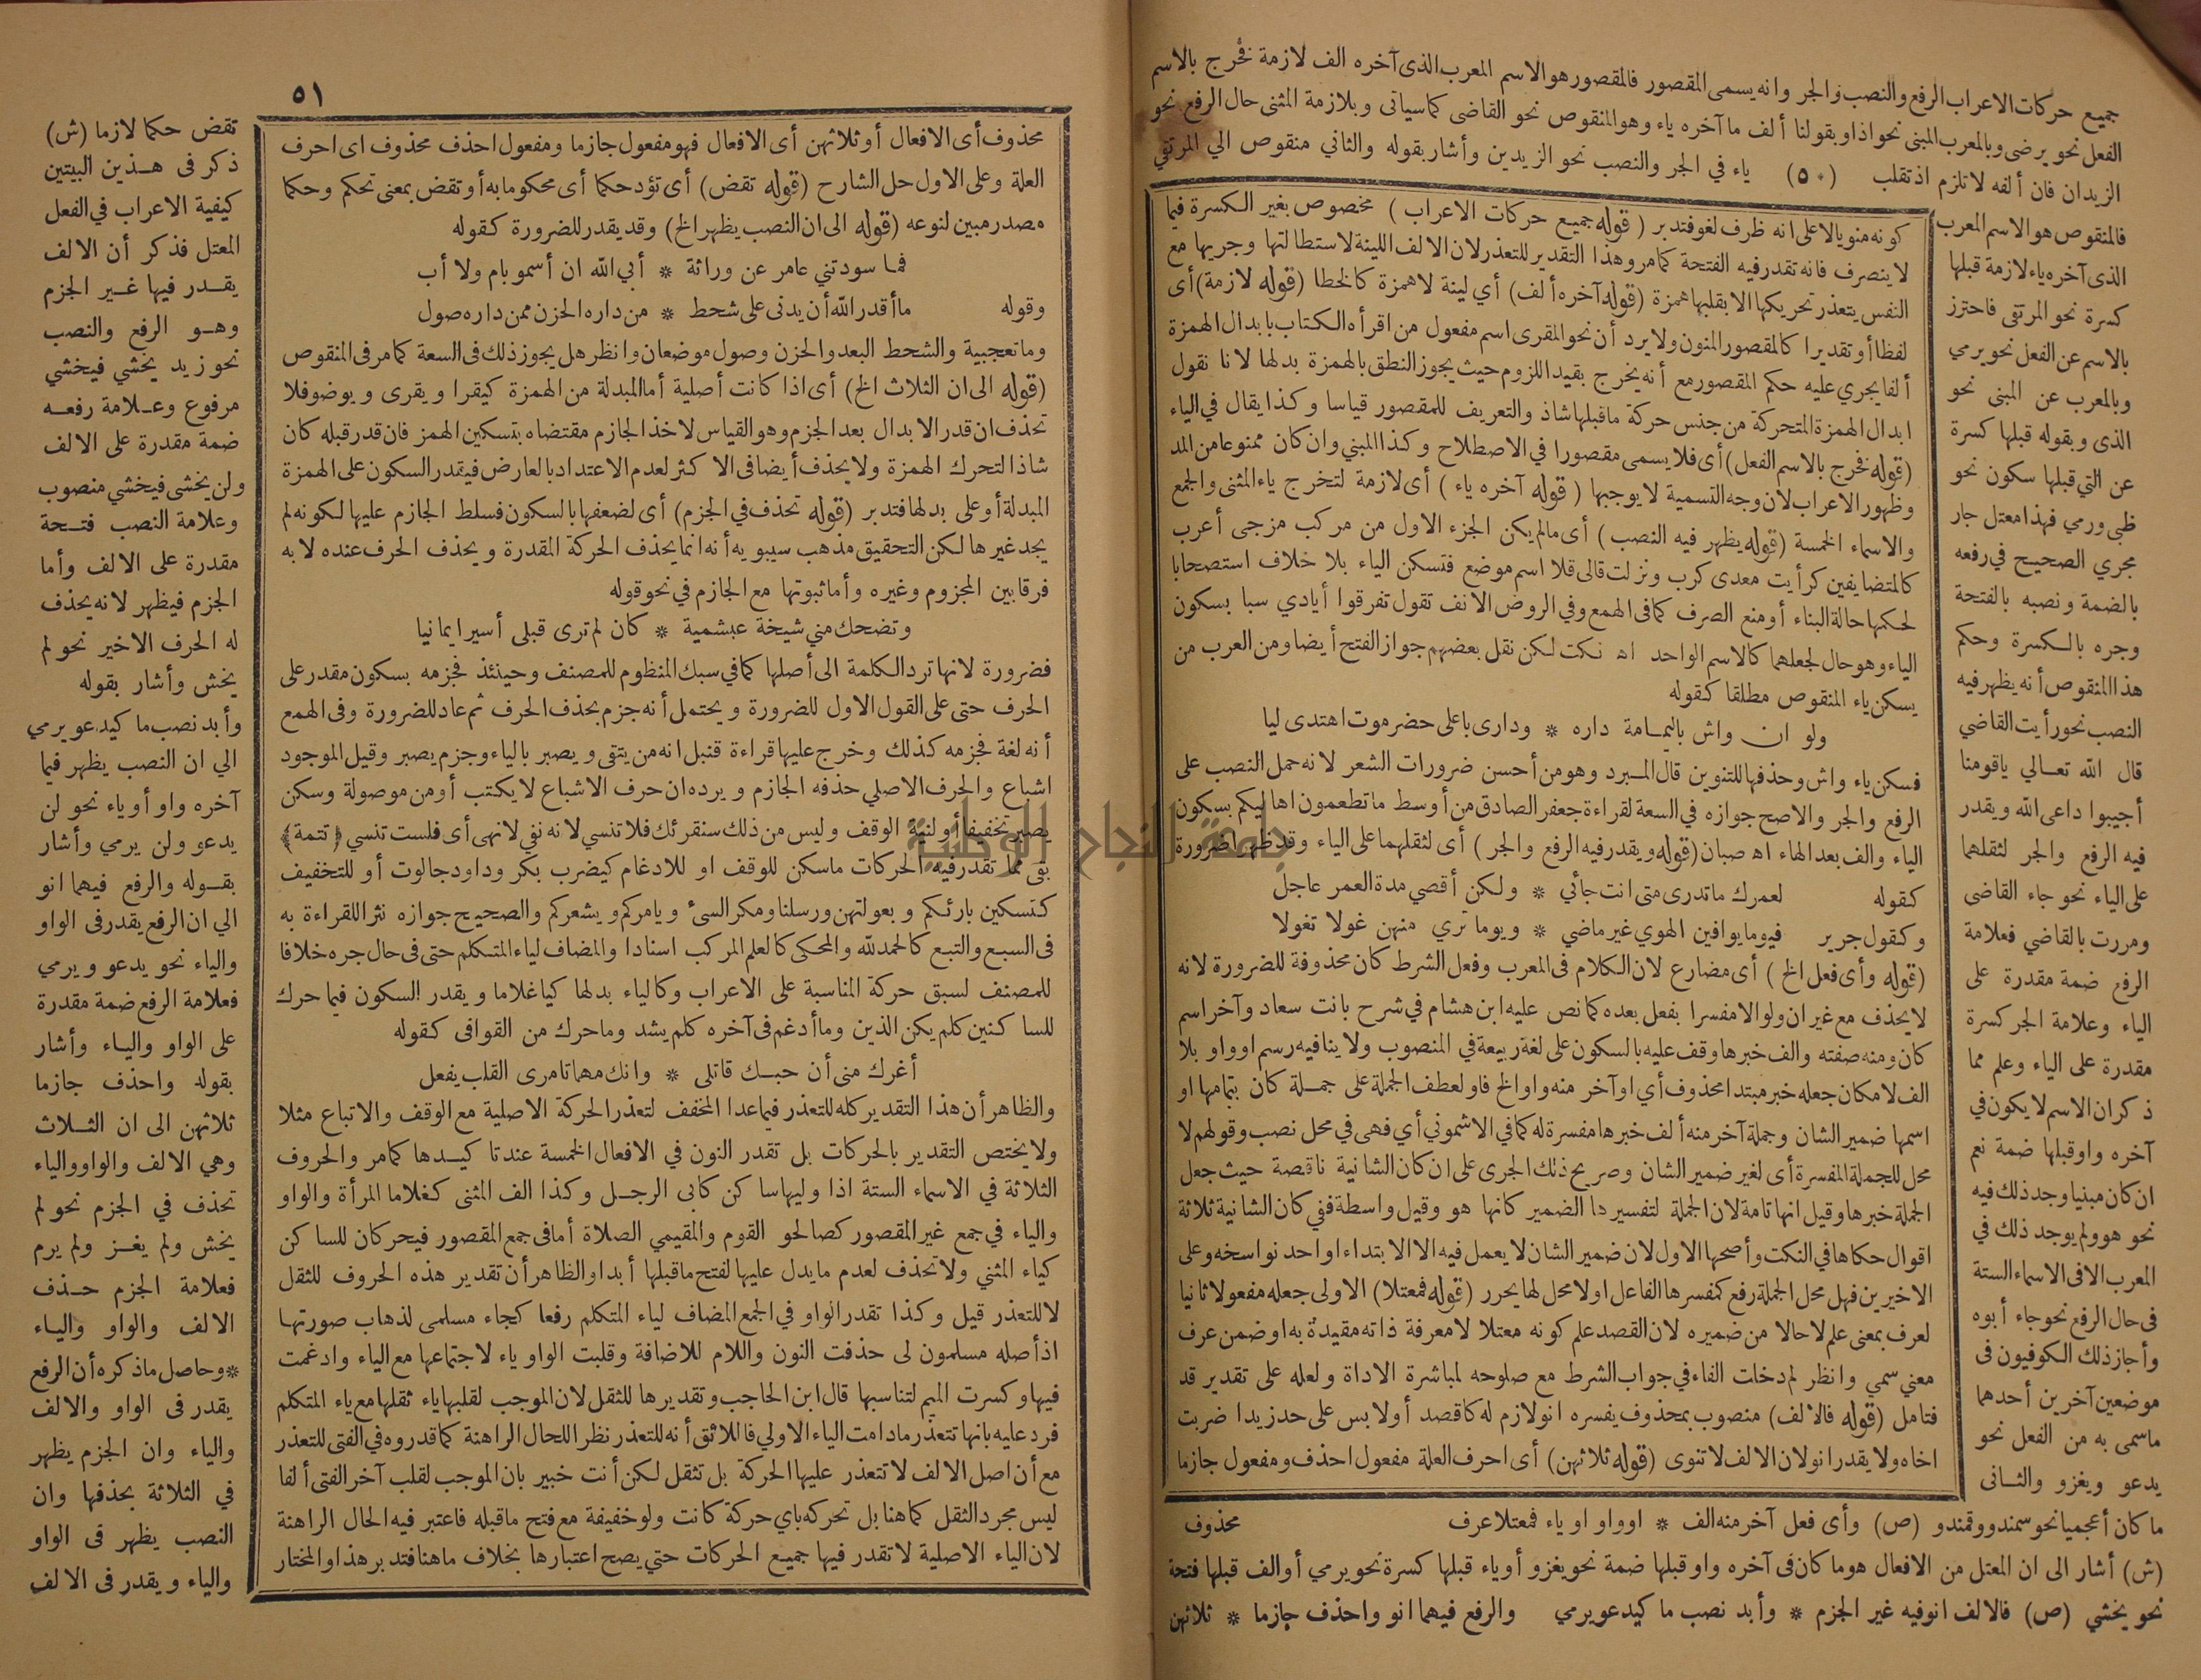 جميع حركات الاعراب الرفع والنصب والجر وانه يسمى المقصور فالمقصور هو الاسم المعرب الذى آخره الف لازمة نفرج بالاسم
الفعل نحو يرضى وبالمعرب المبنى نحو اذا وبقولنا ألف ما آخره ياء وهو المنقوص نحو القاضى كما سياتى وبلازمة المثنى حال الرفع نحو
الزيدان فان ألفه لا تلزم اذ تقلب (٥٠) ياء في الجر والنصب نحو الزيدين وأشار بقوله والثاني منقوص الي المرتقي
فالمنقوص هو الاسم المعرب
الذى آخره ياء لازمة قبلها
كسرة نحو المرتقى فاحترز
بالاسم عن الفعل نحو يرمي
وبالمعرب عن المبنى نحو
الذى وبقوله قبلها كسرة
عن التي قبلها سكون نحو
ظبى ورمي فهذا معتل جار
مجري الصحيح في رفعه
بالضمة ونصبه بالفتحة
وجره بالكسرة وحكم
هذا المنقوص أنه يظهر فيه
النصب نحو رأيت القاضي
قال الله تعالي ياقومنا
أجيبوا داعى الله ويقدر
فيه الرفع والجر لثقلهما
على الياء نحو جاء القاضى
ومررت بالقاضي فعلامة
الرفع ضمة مقدرة على
الياء وعلامة الجر كسرة
مقدرة على الياء وعلم مما
ذكر ان الاسم لا يكون في
آخره واو قبلها ضمة نعم
ان كان مبنيا وجد ذلك فيه
نحو هو ولم يوجد ذلك في
المعرب الا في الاسماء الستة
فى حال الرفع نحو جاء أبوه
وأجاز ذلك الكوفيون فى
موضعين آخرين أحدهما
ما سمى به من الفعل نحو
يدعو ويغزو والثانى
كونه منويا لا على انه ظرف لغو فتدبر (قوله جميع حركات الاعراب) مخصوص بغير الكسرة فيما
لا ينصرف فانه تقدر فيه الفتحة كما مر وهذا التقدير للتعذر لان الالف اللينة لاستطالتها وجريها مع
النفس يتعذر تحريكها الا بقلبها همزة (قوله آخره ألف) أي لينة لا همزة كالخطا (قوله لازمة) أى
لفظا أو تقديرا كالمقصور المنون ولا يرد أن نحو المقرى اسم مفعول من اقرأه الكتاب بابدال الهمزة
ألفا يجري عليه حكم المقصور مع أنه يخرج بقيد اللزوم حيث يجوز النطق بالهمزة بدلها لانا نقول
ابدال الهمزة المتحركة من جنس حركة ما قبلها شاذ والتعريف للمقصور قياسا وكذا يقال في الياء
(قوله فخرج بالاسم الفعل) أى فلا يسمى مقصورا في الاصطلاح وكذا المبني وان كان ممنوعا من المد
وظهور الاعراب لان وجه التسمية لا يوجبها (قوله آخره ياء) أى لازمة لتخرج ياء المثنى والجمع
والاسماء الخمسة (قوله يظهر فيه النصب) أى ما لم يكن الجزء الاول من مركب مزجى أعرب
كالمتضايفين كرأيت معدى كرب ونزلت قالى قلا اسم موضع فتسكن الياء بلا خلاف استصحابا
لحكمها حالة البناء أو منع الصرف كما في الهمع وفي الروض الانف تقول تفرقوا أيادي سبا بسكون
الياء وهو حال لجعلهما كالاسم الواحد اه نكت لكن نقل بعضهم جواز الفتح أيضا ومن العرب من
يسكن ياء المنقوص مطلقا كقوله
ولو ان واش باليمامة داره * ودارى باعلى حضرموت اهتدى ليا
فسكن ياء واش وحذفها للتنوين قال المبرد وهو من أحسن ضرورات الشعر لانه حمل النصب على
الرفع والجر والاصح جوازه في السعة لقراءة جعفر الصادق من أوسط ما تطعمون اهاليكم بسكون
الياء والف بعد الهاء اه صبان (قوله ويقدر فيه الرفع والجر) أى لثقلهما على الياء وقد ظهر لضرورة
كقوله لعمرك ما تدرى متى انت جائي * ولكن أقصي مدة العمر عاجل
وكقول جرير فيوما يوافين الهوي غير ماضي * ويوما تري منهن غولا تغولا
(قوله وأى فعل الخ) أى مضارع لان الكلام فى المعرب وفعل الشرط كان محذوفة للضرورة لانه
لا يحذف مع غير ان ولو الا مفسرا بفعل بعده كما نص عليه ابن هشام في شرح بانت سعاد وآخر اسم
كان ومنه صفته والف خبرها وقف عليه بالسكون على لغة ربيعة في المنصوب ولا ينافيه رسم او واو بلا
الف لامكان جعله خبر مبتدا محذوف أي او آخر منه واو الخ فاو لعطف الجملة على جملة كان بتمامها او
اسمها ضمير الشان وجملة آخر منه ألف خبرها مفسرة له كما في الاشموني أي فهى في محل نصب وقولهم لا
محل للجملة المفسرة أى لغير ضمير الشان وصريح ذلك الجرى على ان كان الشانية ناقصة حيث جعل
الجملة خبرها وقيل انها تامة لان الجملة لتفسيرها الضمير كانها هو وقيل واسطة ففي كان الشانية ثلاثة
اقوال حكاها في النكت وأصحها الاول لان ضمير الشان لا يعمل فيه الا الابتداء او احد نواسخه وعلى
الاخيرين فهل محل الجملة رفع كمفسرها الفاعل اولا محل لها يحرر (قوله فمعتلا) الاولى جعله مفعولا ثانيا
لعرف بمعنى علم لا حالا من ضميره لان القصد علم كونه معتلا لا معرفة ذاته مقيدة به او ضمن عرف
معني سمي وانظر لم دخلت الفاء في جواب الشرط مع صلوحه لمباشرة الاداة ولعله على تقدير قد
فتامل (قوله فالالف) منصوب بمحذوف يفسره انو لازم له كاقصد أو لابس على حد زيدا ضربت
اخاه ولا يقدر انو لان الالف لا تنوى (قوله ثلاثهن) أى احرف العلة مفعول احذف ومفعول جازما
محذوف
ما كان أعجميا نحو سمندو وقمندو (ص) وأى فعل آخر منه الف * او واو او ياء فمعتلا عرف
(ش) أشار الى ان المعتل من الافعال هو ما كان فى آخره واو قبلها ضمة نحو يغزو أو ياء قبلها كسرة نحو يرمي أو الف قبلها فتحة
نحو يخشي (ص) فالالف انو فيه غير الجزم * وأبد نصب ما كيدعو يرمي والرفع فيهما انو واحذف جازما * ثلاثهن
٥١
تقض حكما لازما (ش)
ذكر فى هذين البيتين
كيفية الاعراب في الفعل
المعتل فذكر أن الالف
يقدر فيها غير الجزم
وهو الرفع والنصب
نحو زيد يخشي فيخشي
مرفوع وعلامة رفعه
ضمة مقدرة على الالف
ولن يخشى فيخشي منصوب
وعلامة النصب فتحة
مقدرة على الالف وأما
الجزم فيظهر لانه يحذف
له الحرف الاخير نحو لم
يخش وأشار بقوله
وأبد نصب ما كيدعو يرمي
الي ان النصب يظهر فيما
آخره واو أو ياء نحو لن
يدعو ولن يرمي وأشار
بقوله والرفع فيهما انو
الي ان الرفع يقدر فى الواو
والياء نحو يدعو ويرمي
فعلامة الرفع ضمة مقدرة
على الواو والياء وأشار
بقوله واحذف جازما
ثلاثهن الى ان الثلاث
وهي الالف والواو والياء
تحذف في الجزم نحو لم
يخش ولم يغز ولم يرم
فعلامة الجزم حذف
الالف والواو والياء
* وحاصل ما ذكره أن الرفع
يقدر فى الواو والالف
والياء وان الجزم يظهر
في الثلاثة بحذفها وان
النصب يظهر فى الواو
والياء ويقدر فى الالف
محذوف أى الافعال أو ثلاثهن أى الافعال فهو مفعول جازما ومفعول احذف محذوف اى احرف
العلة وعلى الاول حل الشارح (قوله تقض) أى تؤد حكما أى محكوما به أو تقض بمعنى تحكم وحكما
مصدر مبين لنوعه (قوله الى ان النصب يظهر الخ) وقد يقدر للضرورة كقوله
فما سودتني عامر عن وراثة * أبي الله ان أسمو بام ولا أب
وقوله ما أقدر الله أن يدنى على شحط * من داره الحزن ممن داره صول
وما تعجبية والشحط البعد والحزن وصول موضعان وانظر هل يجوز ذلك فى السعة كما مر فى المنقوص
(قوله الى ان الثلاث الخ) أى اذا كانت أصلية أما المبدلة من الهمزة كيقرا ويقرى ويوضو فلا
تحذف ان قدر الابدال بعد الجزم وهو القياس لاخذ الجازم مقتضاه بتسكين الهمز فان قدر قبله كان
شاذا لتحرك الهمزة ولا يحذف أيضا فى الاكثر لعدم الاعتداد بالعارض فيقدر السكون على الهمزة
المبدلة أو على بدلها فتدبر (قوله تحذف في الجزم) أى لضعفها بالسكون فسلط الجازم عليها لكونه لم
يجد غيرها لكن التحقيق مذهب سيبويه أنه انما يحذف الحركة المقدرة ويحذف الحرف عنده لا به
فرقا بين المجزوم وغيره وأما ثبوتها مع الجازم في نحو قوله
وتضحك مني شيخة عبشمية * كان لم ترى قبلى أسيرا يمانيا
فضرورة لانها ترد الكلمة الى أصلها كما في سبك المنظوم للمصنف وحينئذ فجزمه بسكون مقدر على
الحرف حتى على القول الاول للضرورة ويحتمل أنه جزم بحذف الحرف ثم عاد للضرورة وفى الهمع
أنه لغة فجزمه كذلك وخرج عليها قراءة قنبل انه من يتقى ويصبر بالياء وجزم يصبر وقيل الموجود
اشباع والحرف الاصلي حذفه الجازم ويرده ان حرف الاشباع لا يكتب أو من موصولة وسكن
يصبر تخفيفا أو لنية الوقف وليس من ذلك سنقرئك فلا تنسي لانه نفي لا نهى أى فلست تنسي ﴿تتمة﴾
بقى مما تقدر فيه الحركات ما سكن للوقف او للادغام كيضرب بكر وداود جالوت أو للتخفيف
كتسكين بارئكم وبعولتهن ورسلنا ومكر السيء ويامركم ويشعركم والصحيح جوازه نثرا للقراءة به
فى السبع والتبع كالحمد لله والمحكى كالعلم المركب اسنادا والمضاف لياء المتكلم حتى فى حال جره خلافا
للمصنف لسبق حركة المناسبة على الاعراب وكالياء بدلها كياغلاما ويقدر السكون فيما حرك
للساكنين كلم يكن الذين وما أدغم فى آخره كلم يشد وما حرك من القوافى كقوله
أغرك منى أن حبك قاتلى * وانك مهما تامرى القلب يفعل
والظاهر أن هذا التقدير كله للتعذر فيما عدا المخفف لتعذر الحركة الاصلية مع الوقف والاتباع مثلا
ولا يختص التقدير بالحركات بل تقدر النون في الافعال الخمسة عند تاكيدها كما مر والحروف
الثلاثة في الاسماء الستة اذا وليها ساكن كابى الرجل وكذا الف المثنى كغلاما المرأة والواو
والياء في جمع غير المقصور كصالحو القوم والمقيمي الصلاة أما فى جمع المقصور فيحركان للساكن
كياء المثني ولا تحذف لعدم ما يدل عليها لفتح ما قبلها أبدا والظاهر أن تقدير هذه الحروف للثقل
لا للتعذر قيل وكذا تقدر الواو في الجمع المضاف لياء المتكلم رفعا كجاء مسلمى لذهاب صورتها
اذ أصله مسلمون لى حذفت النون واللام للاضافة وقلبت الواو ياء لاجتماعها مع الياء وادغمت
فيها وكسرت الميم لتناسبها قال ابن الحاجب وتقديرها للثقل لان الموجب لقلبها ياء ثقلها مع ياء المتكلم
فرد عليه بانها تتعذر ما دامت الياء الاولي فاللائق أنه للتعذر نظرا للحال الراهنة كما قدروه في الفتى للتعذر
مع أن اصل الالف لا تتعذر عليها الحركة بل تثقل لكن أنت خبير بان الموجب لقلب آخر الفتى ألفا
ليس مجرد الثقل كما هنا بل تحركه باي حركة كانت ولو خفيفة مع فتح ما قبله فاعتبر فيه الحال الراهنة
لان الياء الاصلية لا تقدر فيها جميع الحركات حتي يصح اعتبارها بخلاف ما هنا فتدبر هذا والمختار
جامعة النجاح الوطنية